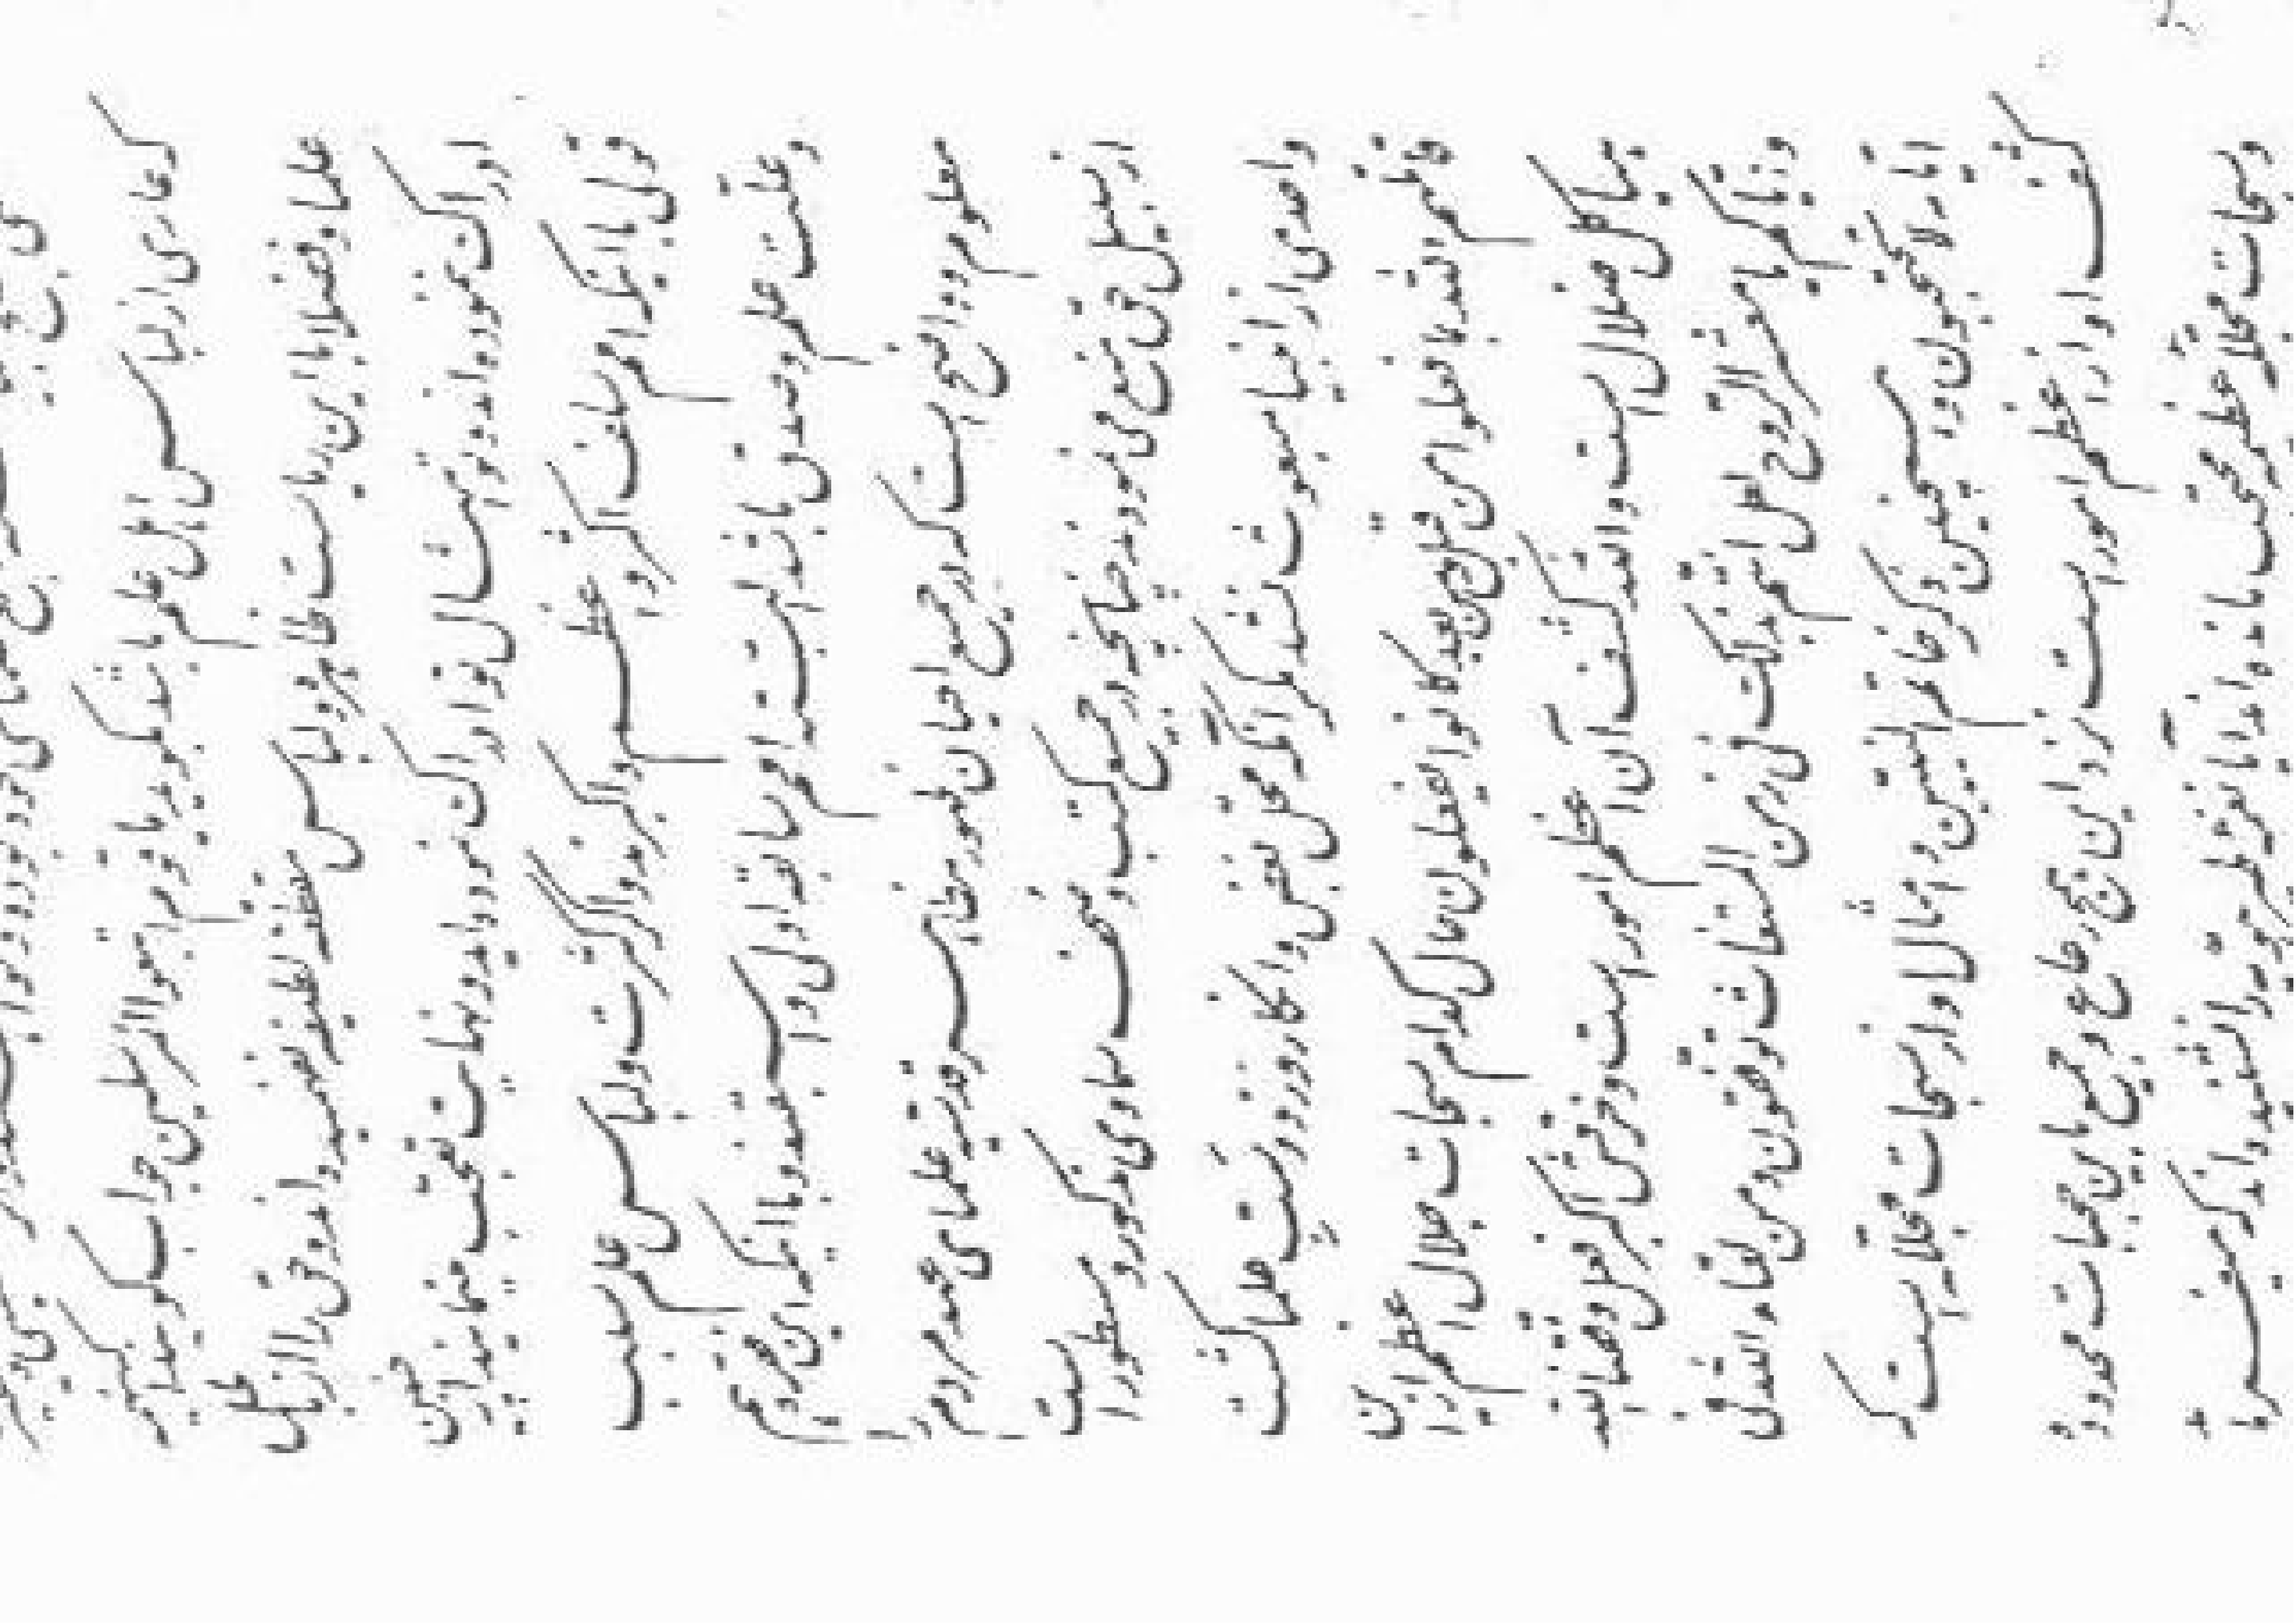 که عاری از لباس اهل علم باشد که بگوید یا قوم اتبعوا المرسلین جواب گویند همه
علما و فضلا با این ریاست ظاهره و لباس مقطعه لطیفه نفهمیده‌اند و حق را از باطل
ادراک ننموده‌اند و تو و امثال تو ادراک نموده‌اید و نهایت تعجب مینمایند از چنین
قولی با اینکه امم سلف اکثر و اعظم و اکبرند و اگر کثرت و لباس علم سبب
و علت علم و صدق باشد البته امم سابقه اولی و اسبقند و با اینکه این فقره هم
معلوم و واضح است که در جمیع احیان ظهور مظاهر قدسیه علمای عهد مردم را
از سبیل حق منع مینمودند چنانچه در جمیع کتب و صحف سماوی مذکور و مسطور است
و احدی از انبیا مبعوث نشد مگر آنکه محل بغض و انکار و رد و سب علما گشت
قاتلهم الله بما فعلوا من قبل و من بعد کانوا یفعلون حال کدام سبحات جلال اعظم از این
هیاکل ضلال است والله کشف آن اعظم امور است و خرقش اکبر افعال وفقنا الله
و ایاکم یا معشر الروح لعل انتم بذلک فی زمن المستغاث توفقون و من لقاء الله فی
ایامه لا تحتجبون و همچنین ذکر خاتم النبیین و امثال او از سبحات مجلله است که
کشف او از اعظم امور است نزد این همج رعاع و جمیع باین حجبات محدوده
و سبحات مجلله عظیمه محتجب مانده‌اند آیا نغمه طیر هویه را نشنیده‌اند که میفرماید